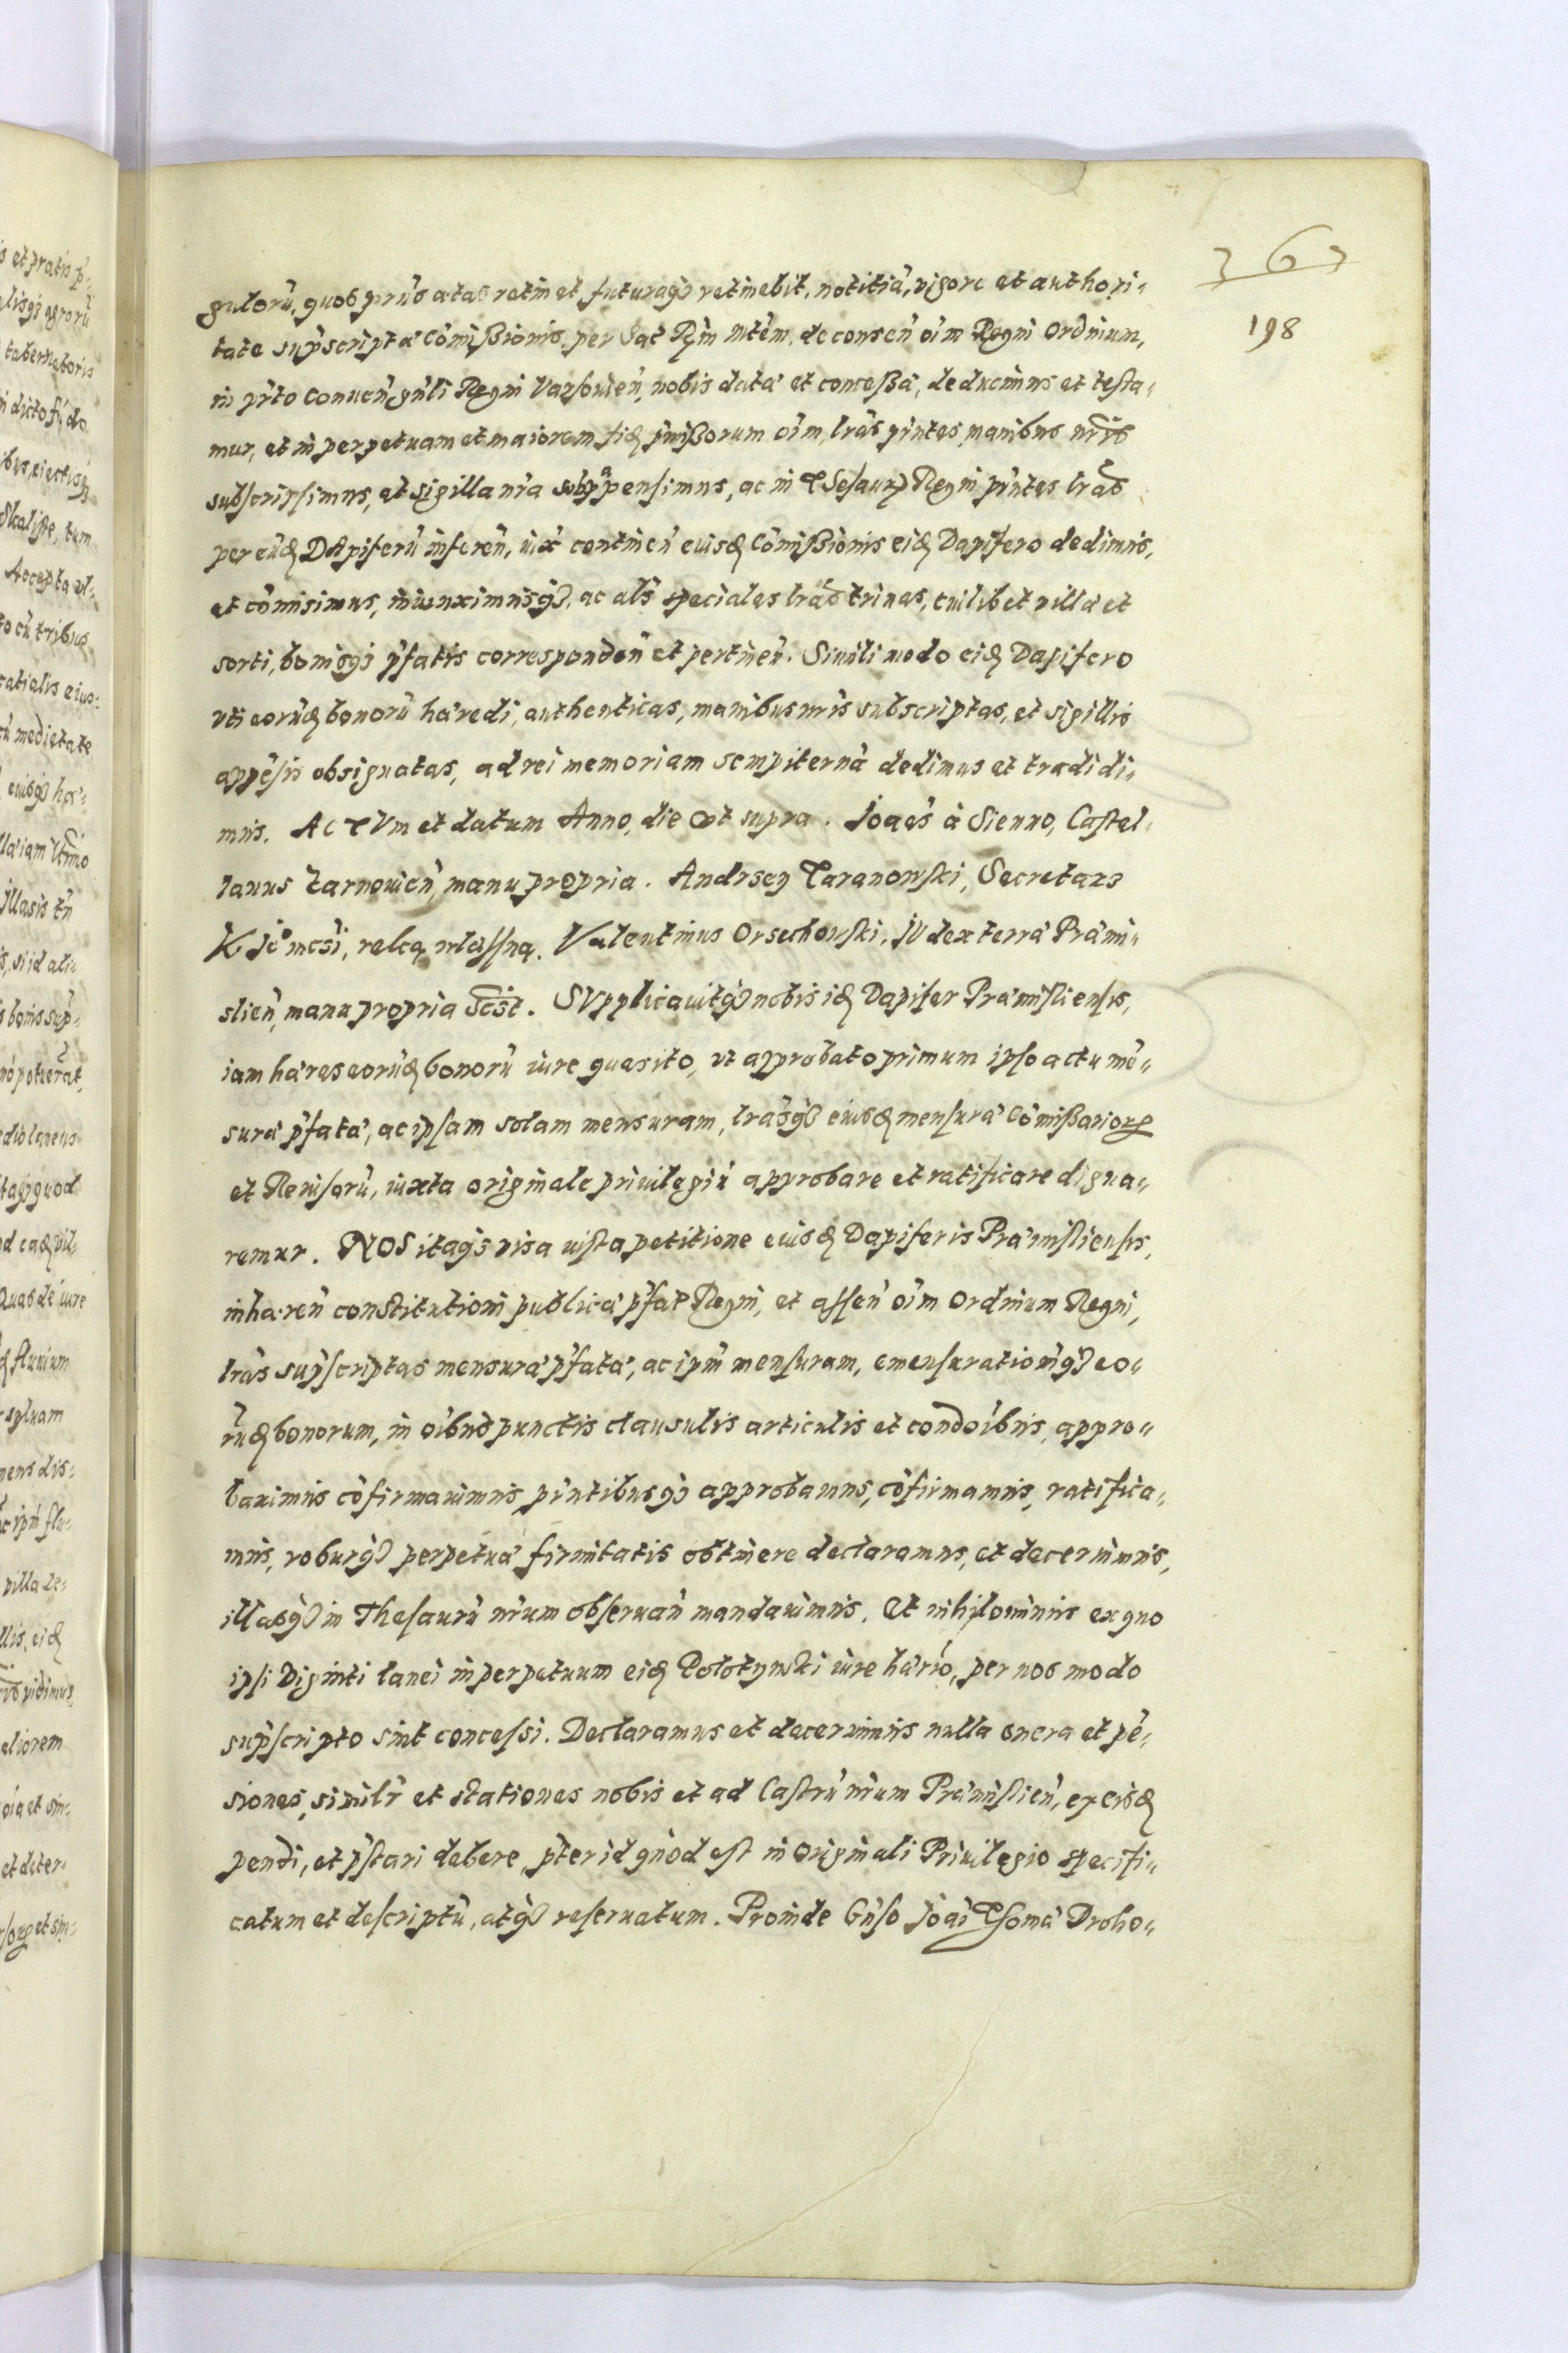 363
198
gulorũ, quos prũs ætas retinet futuraq́ꝫ retinebit, notitiã, vigore et authori„
tate sup̃scriptæ Cõmißionis, per Sac̃ Rg̃m Mtẽm, de conseñ oĩm Regni Ordinum,
in p̃nto conueñ gñli Regni Varsouień, nobis datæ et conceßæ, deducimus et testa„
mur, et in perpetuam et maiorem fidẽ p̃mißorum oĩm, lr̃as p̃ntes, manibus nr̃is
subscripsimus, et sigilla nr̃a subappensimus, ac in Thesaurũ Regni p̃ntes lr̃as
per eũdẽ Dapiferũ inferen̄, iux̃ continen̄ eiusdẽ Cõmißionis eidẽ Dapifero dedimus,
et cõmisimus, iniunximusq́ꝫ, ac als̃ speciales lr̃as trinas, cuilibet villæ et
sorti, bonisq́ꝫ p̃fatis corresponden̄ et pertinen̄. Simili modo eidẽ Dapifero
vti eorũdẽ bonorũ hæredi, authenticas, manibus nr̃is subscriptas, et sigillis
appẽsis obsignatas, ad rei memoriam sempiternã dedimus et tradidi„
mus. ACTVm et datum Anno, die vt supra. Joaẽs à Sienno, Castel„
lanus Zarnouien̄, manu propria. Andrsey Taranowski, Secretarz
K Je° mcsi, ręką własną. Valentinus Orsechowski, JVdex terræ Præmi„
slien̄, manu propria sc̃st. SVpplicauitq́ꝫ nobis idẽ Dapifer Præmisliensis,
iam hæres eorũdẽ bonorũ iure quæsito, vt approbato primum ipso actu mẽ„
suræ p̃fatæ, ac ipsam solam mensuram, lr̃asq́ꝫ eiusdẽ mensuræ Cõmißariorꝝ
et Reuisorũ, iuxta originale priuilegiũ approbare et ratificare digna„
remur. NOS itaq́ꝫ visa iusta petitione eiusdẽ Dapiferis Præmisliensis,
inhæren̄ constitutioni publicæ p̃fat Regni, et assen̄ oĩm Ordinum Regni,
lr̃as sup̃scriptas mensuræ p̃fatæ, ac ipm̃ mensuram, emensurationẽq́ꝫ eo„
rũdẽ bonorum, in oĩbus punctis clausulis articulis et condoĩbus, appro„
bauimus cõfirmauimus, p̃ntibusq́ꝫ approbamus, cõfirmamus, ratifica„
mus, roburq́ꝫ perpetuæ firmitatis obtinere declaramus, et decernimus,
illasq́ꝫ in Thesaurũ nr̃um obseruan̄ mandauimus. Et nihilominus ex quo
ipsi Viginti lanei in perpetuum eidẽ Polotynski iure hær̃io, per nos modo
sup̃scripto sint concessi. Declaramus et decernimus nulla onera et pẽ„
siones, similr̃ et stationes nobis et ad Castrũ nr̃um Præmislien̄, ex eisdẽ
pendi, et p̃stari debere, p̃ter id quod est in Originali Priuilegio specifi„
catum et descriptũ, atq́ꝫ reseruatum. Proinde Gñso Joãi Thomæ Droho„